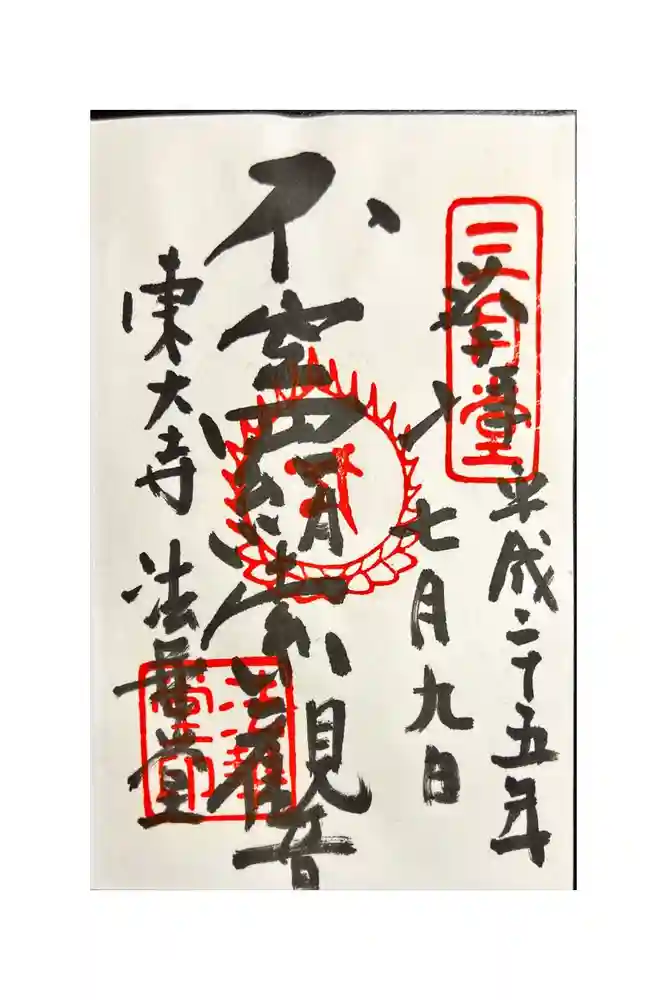 奉拝
平成二十五年
七月九日
三月堂
不空羂索観音
東大寺 法華堂